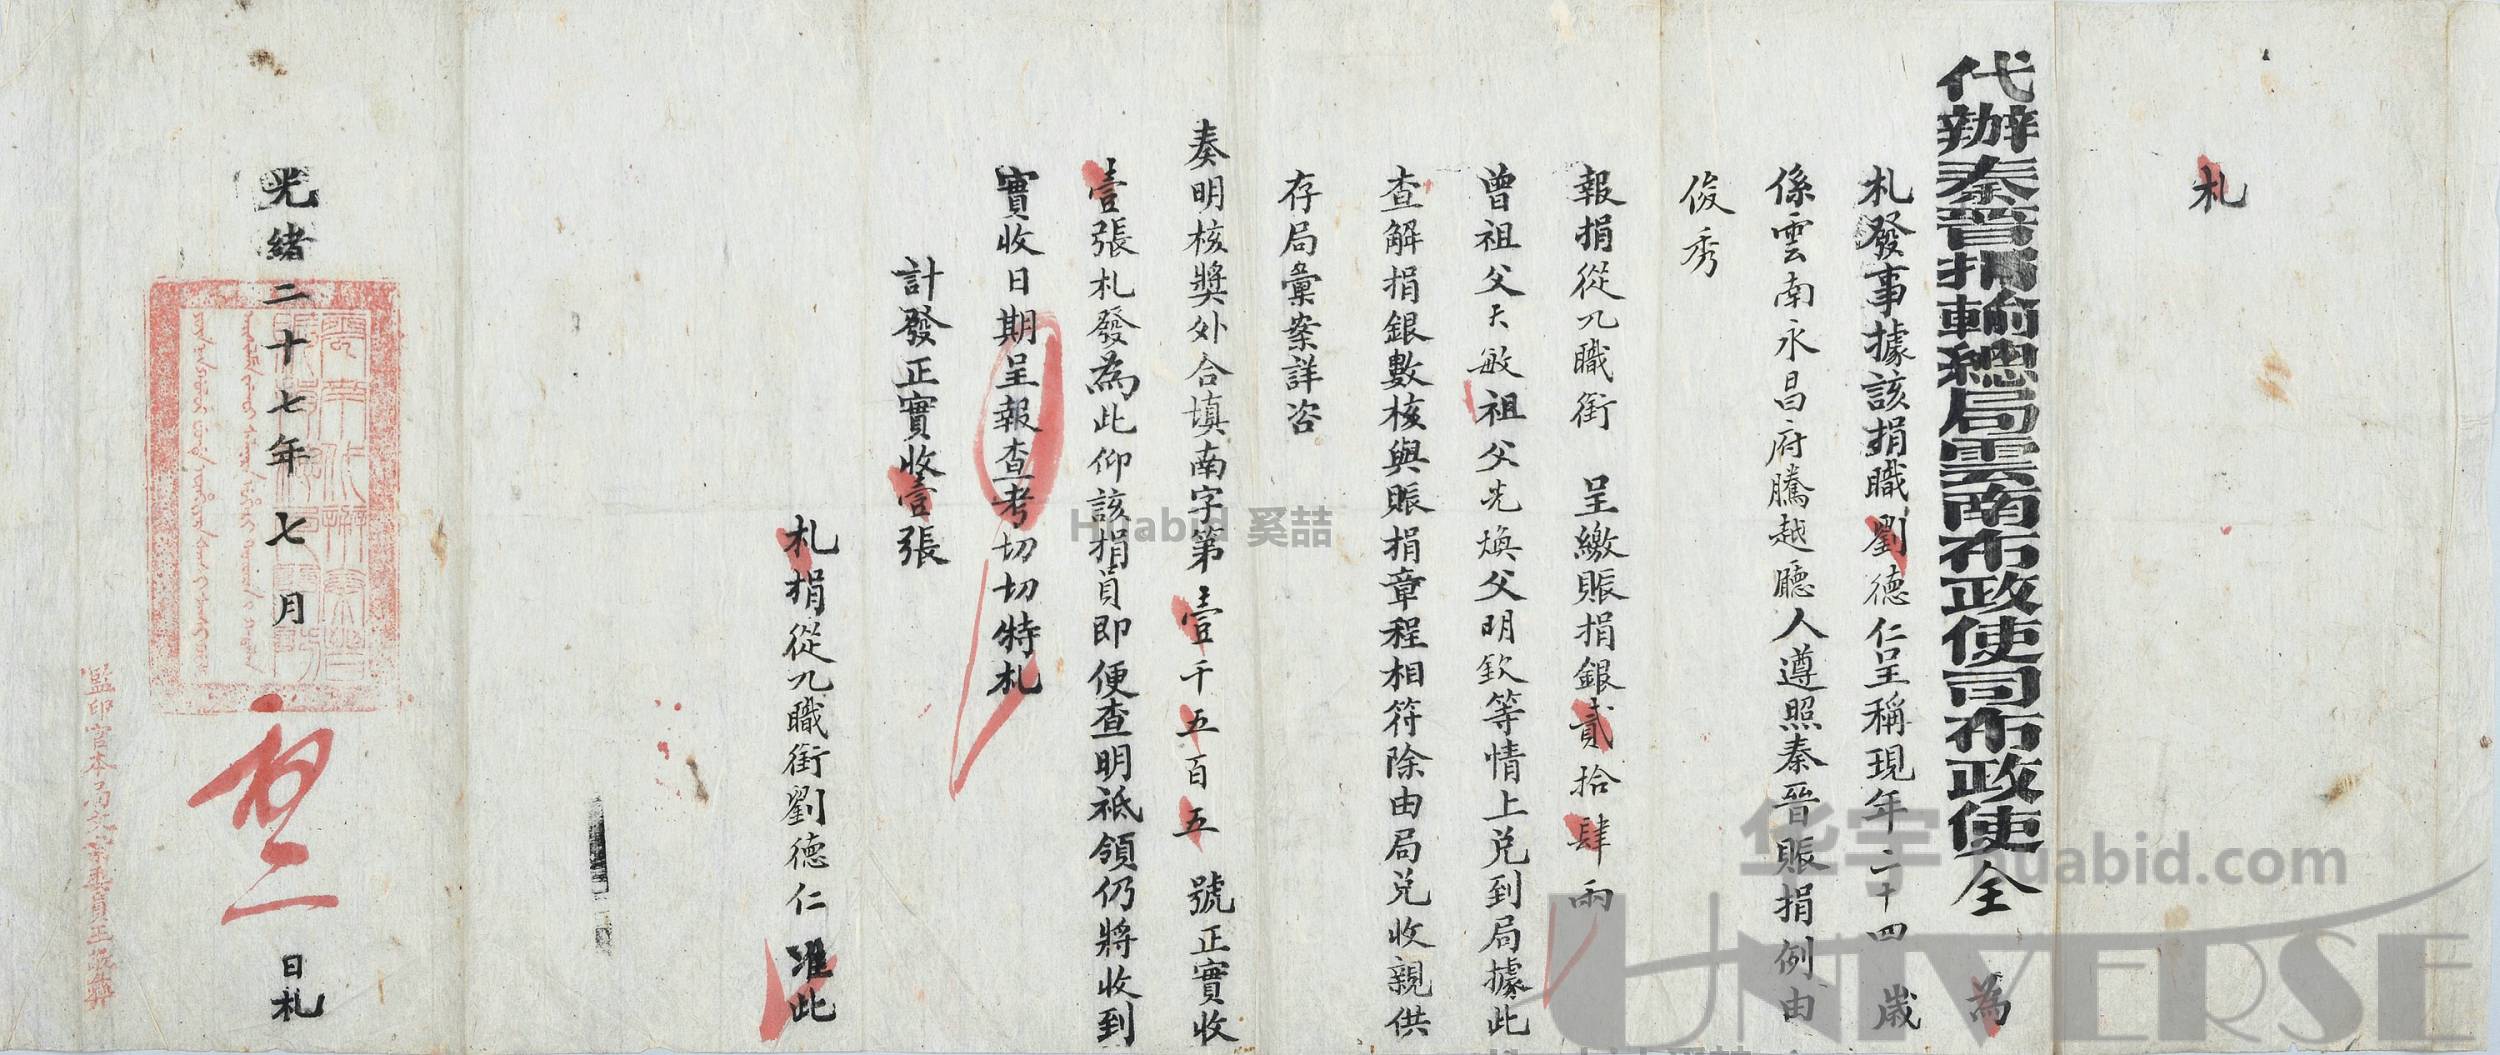 札
代辦秦晉捐輸總局雲南布政使司布政使全 為
札發事據該捐職劉德仁呈稱現年二十四歲
係雲南永昌府騰越廳人遵照秦晉賑捐例由
俊秀
報捐從九職銜 呈繳賑捐銀貳拾肆兩
曾祖父天敏祖父光煥父明欽等情上兌到局據此
查解捐銀數核與賑捐章程相符除由局兌收親供
存局彙案詳咨
奏明核獎外合填南字第壹千五百五號正實收
壹張札發為此仰該捐員即便查明祗領仍將收到
實收日期呈報查考切切特札
計發正實收壹張
札捐從九職銜劉德仁准此
光緒二十七年七月 日札
監印官本局文案委員王
Huabid 奚喆
华宇 huabid.com
UNIVERSE